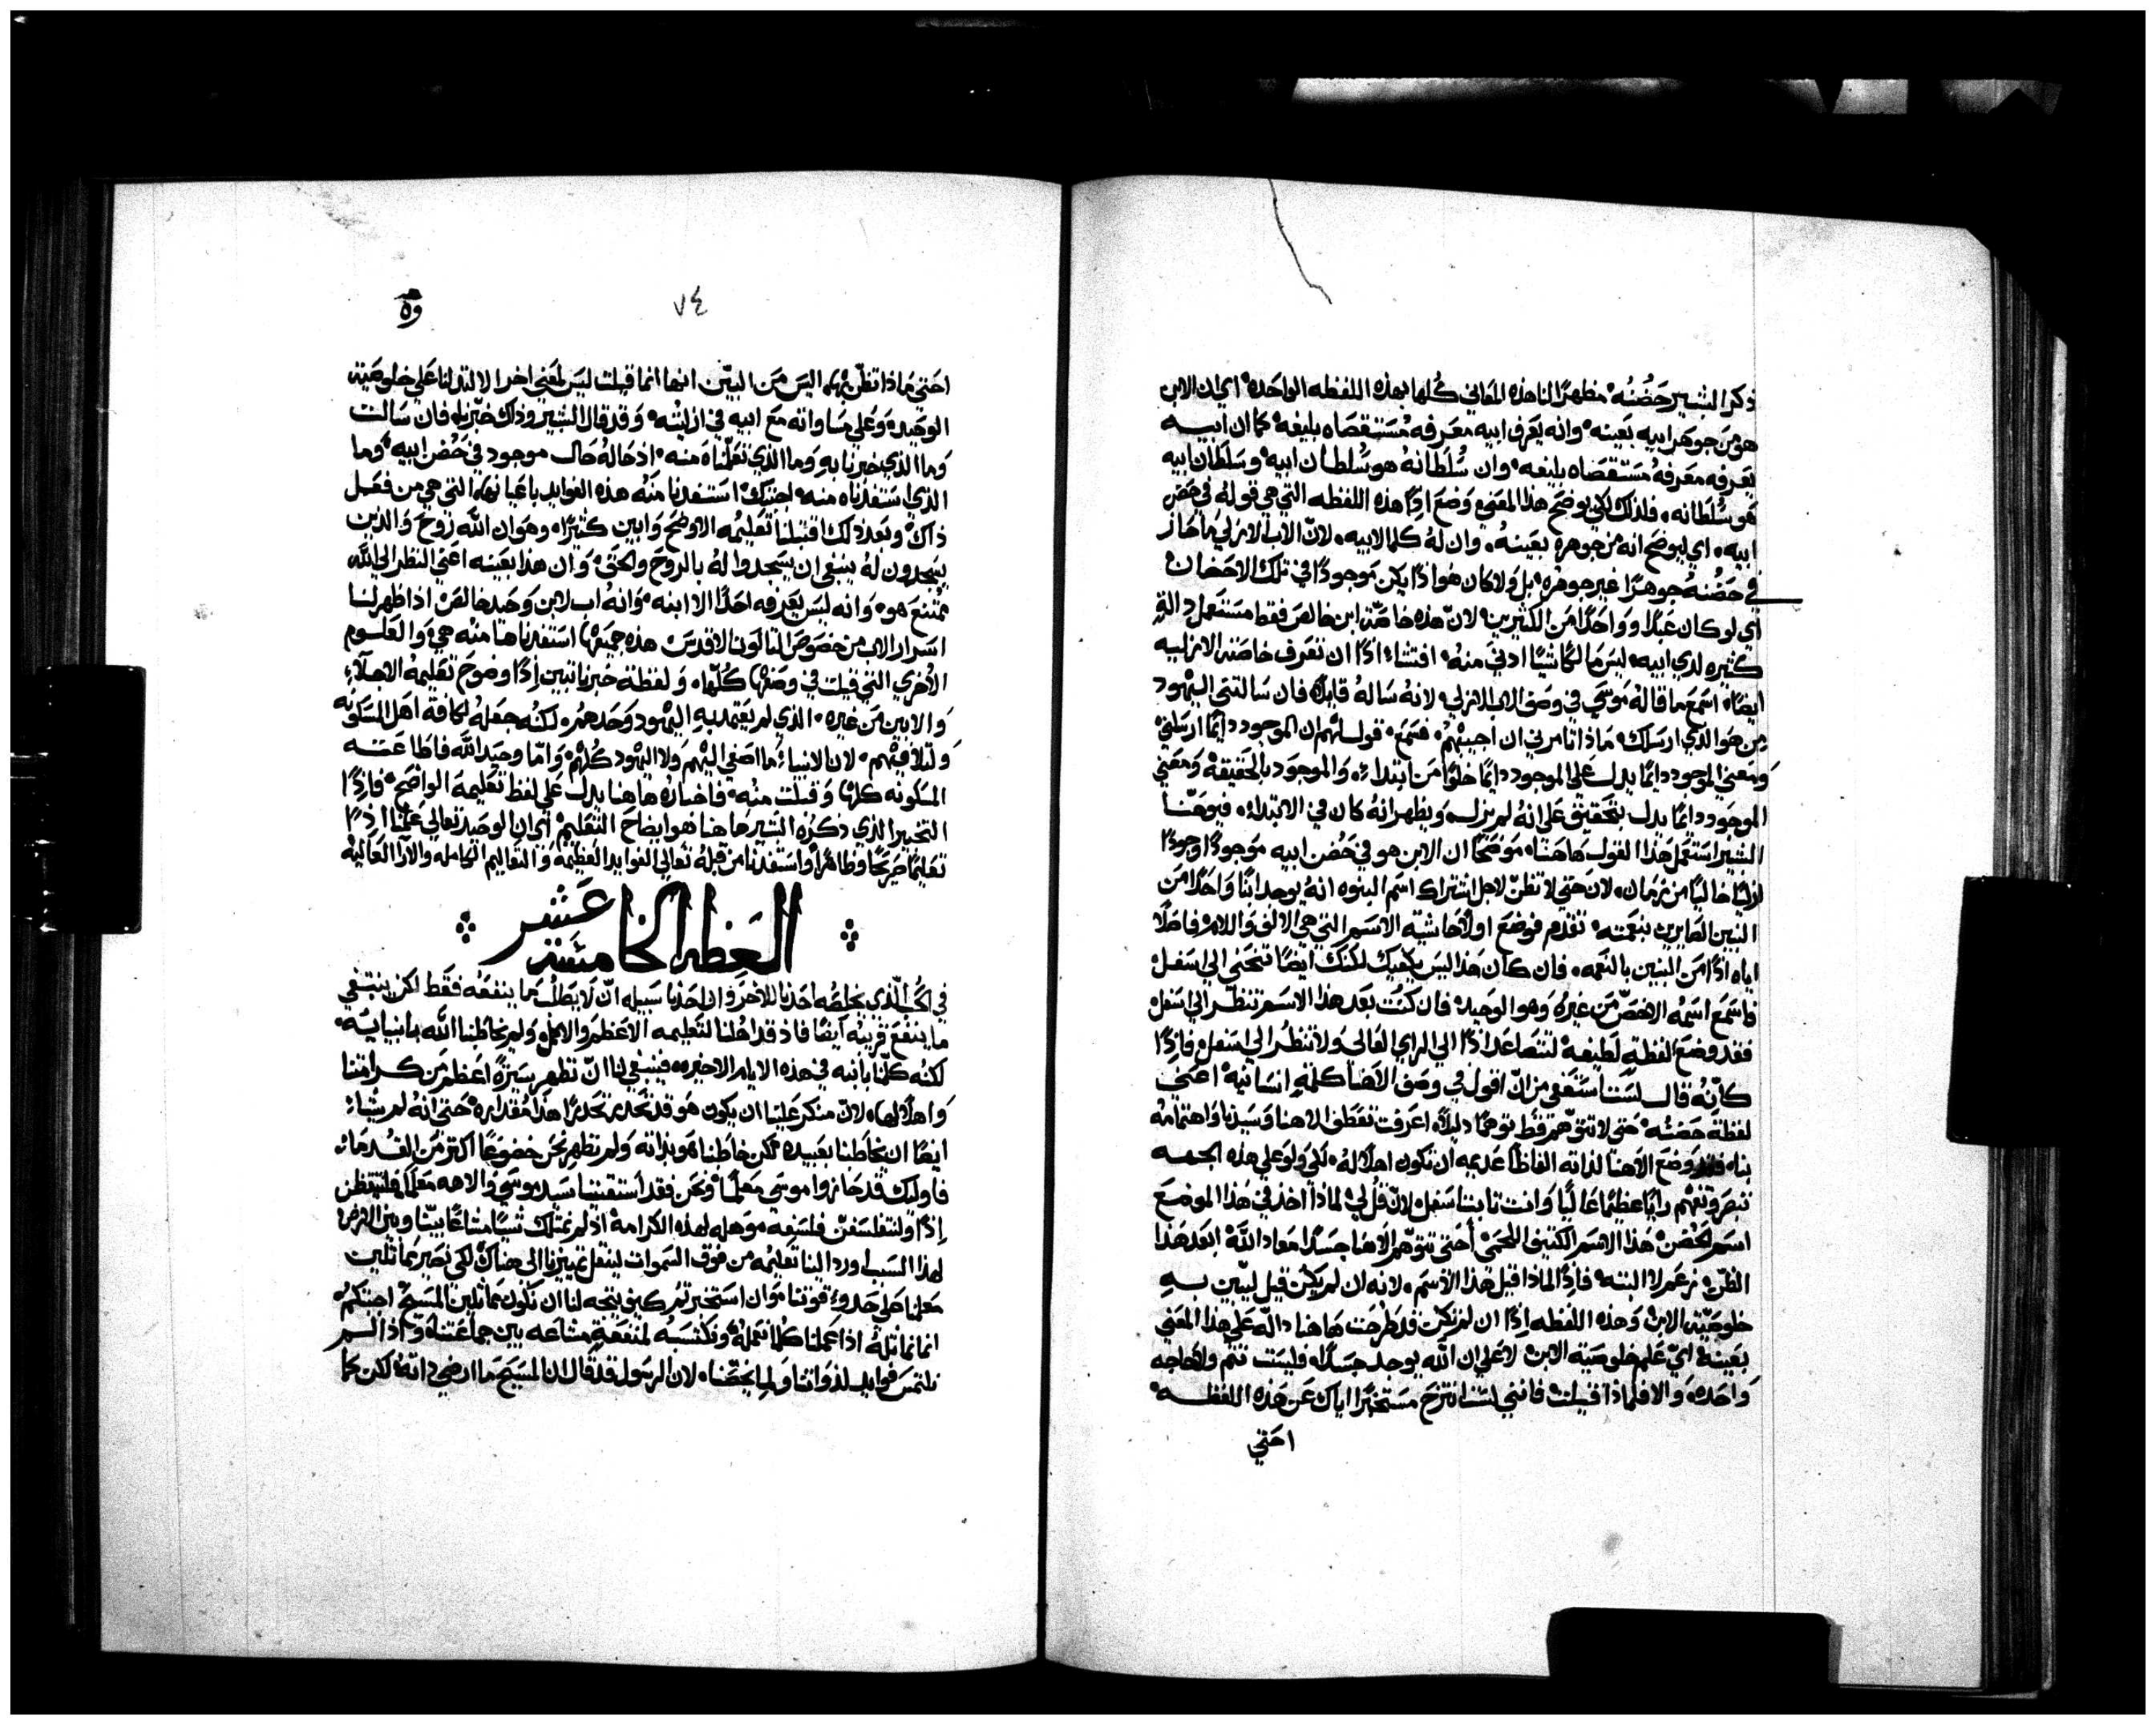 ذكر البشير حضنه مظهرًا لنا هذه المعاني كلها بهذه اللفظه الواحده اي ان الابن
هو من جوهر ابيه بعينه وانه يعرف ابيه معرفه مستقصاه بليغه كما ان ابيه
يعرفه معرفه مستقصاه بليغه وان سلطانه هو سلطان ابيه وسلطان ابيه
هو سلطانه فلذلك لكي يوضح هذا المعني وضع اذًا هذه اللفظه التي هي قوله في حضن
ابيه اي ليوضح انه من جوهره بعينه وان له كلما لابيه لان الاب الازلي ما حاز
في حضنه جوهرًا غير جوهره بل ولا كان هو اذًا يكن موجودًا في تلك الاحضان
اي لو كان عبدًا وواحدًا من الكثيرين لان هذه خاصة ابن خالص فقط مستعمل دالةٍ
كثيره لدي ابيه ليس مالكًا شيًا ادني منه افتشاء اذًا ان تعرف خاصته الازليه
ايضًا اسمع ما قاله موسي في وصف الاب الازلي لانه ساله قايلًا فان سالتني اليهود
من هو الذي ارسلك ماذا تامرني ان اجيبهم فسمع قول لهم ان الموجود دايمًا ارسلني
ومعني الموجود دايمًا يدل علي الموجود دايمًا خلوًا من ابتداء والموجود بالحقيقه ومعني
الموجود دايمًا يدل بتحقيق علي انه لم يزل ويظهر انه كان في الابتداء فيوحنا
البشير استعمل هذا القول هاهنا موضحًا ان الابن هو في حضن ابيه موجودًا وجودًا
ازليًا خاليًا من زمان لان حتي لا تظن لاجل اشتراك اسم البنوه انه يوجد ابنًا واحدًا من
البنين الصايرين بنعمته تقدم فوضع اولًا حاشية الاسم التي هي الالف واللام فاصلًا
اياه اذًا من البنين بالنعمه فان كان هذا ليس يكفيك لكنك ايضًا تنحني الي اسفل
فاسمع اسمه الاخص من غيره وهو الوحيد فان كنت بعد هذا الاسم تنظر الي اسفل
فقد وضع لفظةٍ لطيفه لتتصاعد اذًا الي الراي العالي ولا تنظر الي اسفل فاذًا
كانه قال لست استعفي من ان اقول في وصف الاهنا كلمةٍ انسانيه اعني
لفظة حضنه حتي لا تتوهم قط توهمًا ذليلًا اعرفت تعطف الاهنا وسيدنا واهتمامه
بنا فقد وضع الاهنا لذاته الفاظًا عديمه ان تكون اهلًا له لكي ولو علي هذه الجهه
تبصر وتفهم رايًا عظيمًا عاليًا وانت ثابتا اسفل لان قل لي لماذا اخذ في هذا الموضع
اسم الحضن هذا الاسم الكثيف اللحمي أحتي تتوهم الاهنا جسدًا معاذ الله ابعد هذا
الظن نعم لا البته فاذًا لماذا قيل هذا الاسم لانه ان لم يكن قيل ليبين به
خلوصية الابن وهذه اللفظه اذًا ان لم تكن قد طرحت هاهنا دالة علي هذا المعني
بعينه اي علي خلوصية الابن لا علي ان الله يوجد جسدًا فليست تتم ولا حاجه
واحده والا فلماذا قيلت فانني لست انتزح مستخبرًا اياك عن هذه اللفظه
احتي
٧٤
احتي ماذا تظن بها اليس من البين انها انما قيلت ليس لمعني اخر الا لتدلنا علي خلوصية
الوحيد وعلي مساواته مع ابيه في ازليته وقد قال البشير وذاك خبرنا فان سالت
وما الذي خبرنا به وما الذي تعلمناه منه اذ حاله حال موجود في حضن ابيه وما
الذي استفدناه منه اجبتك استفدنا منه هذه الفوايد باعيانها التي هي من فعل
ذاك وبعد ذلك اقتبلنا تعليمه الاوضح وابين كثيرًا وهو ان الله روح والذين
يسجدون له ينبغي ان يسجدوا له بالروح والحق وان هذا بعينه اعني النظر الي الله
ممتنع هو وانه ليس يعرفه احدًا الا ابنه وانه اب لابن وحيد خالص اذا ظهر لنا
اسرار الاب من خصوص الثالوث الاقدس هذه جميعها استفدناها منه هي والعلوم
الاخري التي قيلت في وصفها كلها ولفظة خبرنا تبين اذًا وضوح تعليمه الاجلاء
والابين من غيره الذي لم يعتمد به اليهود وحدهم لكنه جعله لكافة اهل المسكونه
ولتلافيهم لان الانبياء ما اصغي اليهم ولا اليهود كلهم واما وحيد الله فاطاعته
المسكونه كلها وقبلت منه فاخباره هاهنا يدل علي لفظ تعليمه الواضح فاذًا
التخبير الذي ذكره البشير هاهنا هو ايضاح التعليم اي ان الوحيد تعالي علمنا اذًا
تعليمًا صريحًا وظاهرًا واستفدنا من قبله تعالي الفوايد العظيمه والتعاليم الكامله والآرا العاليه
العظه الخامسة عشر
في الحب الذي يخلصه احدنا للاخر وان احدنا سبيله ان لا يطلب ما ينفعه فقط لكن ينبغي
ما ينفع قريبه ايضًا فاذ قد اهلنا لتعليمه الاعظم والاجل ولم يخاطبنا الله بانبيايه
لكنه كلمنا بابنه في هذه الايام الاخيره فينبغي لنا ان نظهر سيرةً اعظم من كرامتنا
واهلًا لها لان منكر علينا ان يكون هو قد تحدر تحديرًا هذا مقداره حتي انه لم يشاء
ايضًا ان يخاطبنا بعبيده لكن خاطبنا هو بذاته ولم نظهر نحن خضوعًا اكثر من القدماء
فاوليك قد حازوا موسي معلمًا ونحن فقد استقنينا سيد موسي والاهه معلمًا فلنتفطن
اذًا ولنتفلسفن فلسفه موهله لهذه الكرامه اذ لم نمتلك شيًا مشاعًا بيننا وبين الارض
لهذا السبب اورد الينا تعليمه من فوق السموات لينقل تمييزنا الي هناك لكي نصير مماثلين
معلمنا علي حدود قوتنا وان استخبرتم كيف يتجه لنا ان نكون مماثلين المسيح اجبتكم
اننا نماثله اذا عملنا كلما نعمله ونكتسبه لمنفعةٍ مشاعه بين جماعتنا واذا لم
نلتمس فوايد لذواتنا ولما يخصنا لان الرسول قد قال ان المسيح ما ارضي ذاته لكن كما